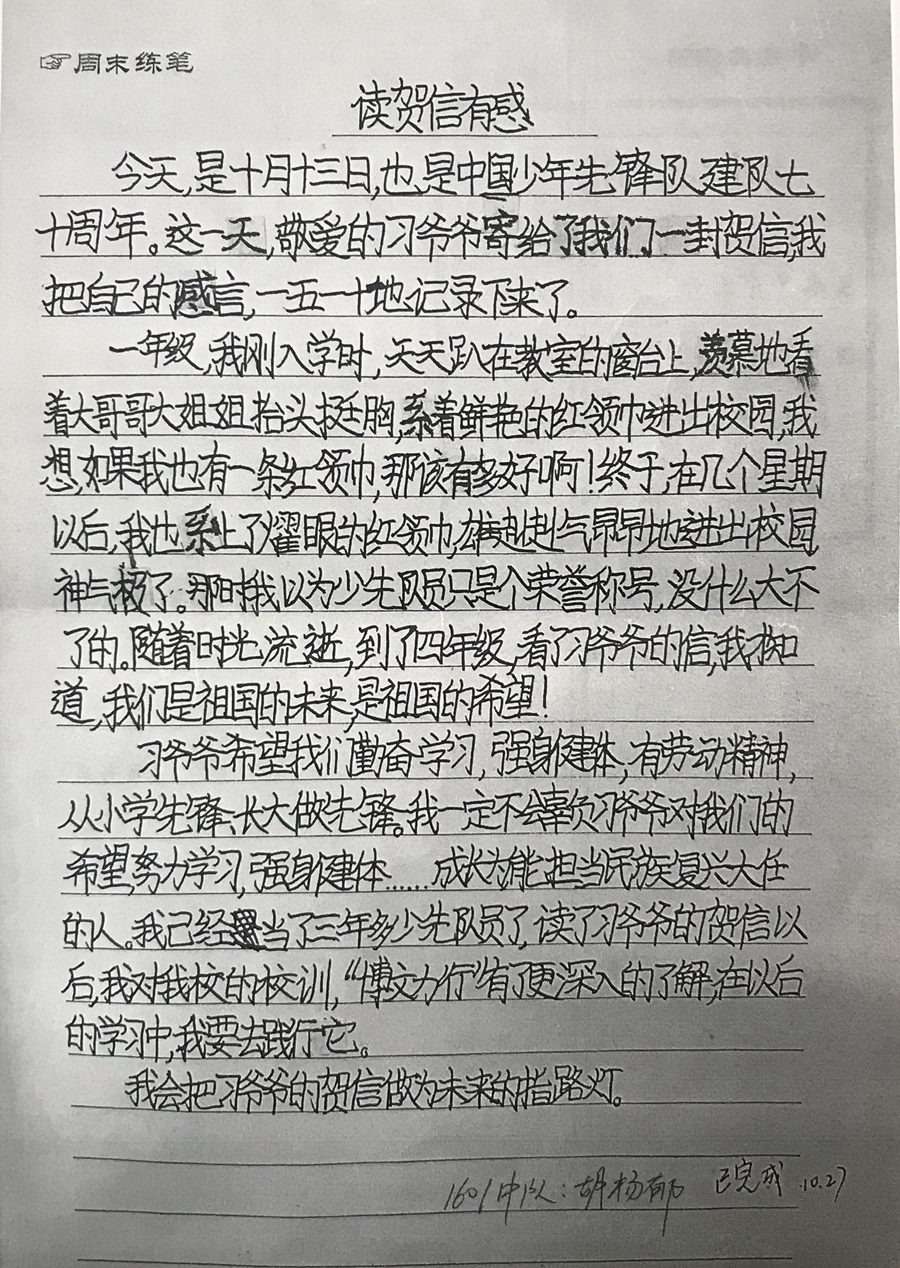 周末练笔
读贺信有感
今天,是十月十三日,也是中国少年先锋队建队七
十周年。这一天,敬爱的习爷爷寄给了我们一封贺信,我
把自己的感言,一五一十地记录下来了。
一年级,我刚入学时,天天趴在教室的窗台上,羡慕地看
着大哥哥大姐姐抬头挺胸,系着鲜艳的红领巾进出校园,我
想,如果我也有一条红领巾,那该有多好啊!终于,在几个星期
以后,我也系上了耀眼的红领巾,雄赳赳气昂昂地进出校园,
神气极了。那时我以为少先队员只是个荣誉称号,没什么大不
了的。随着时光流逝,到了四年级,看了习爷爷的信,我才知
道,我们是祖国的未来,是祖国的希望!
习爷爷希望我们勤奋学习,强身健体,有劳动精神,
从小学先锋、长大做先锋。我一定不会辜负习爷爷对我们的
希望,努力学习,强身健体……成长为能担当民族复兴大任
的人。我已经当了三年多少先队员了,读了习爷爷的贺信以
后,我对我校的校训,“博文力行”有了更深入的了解,在以后
的学习中,我要去践行它。
我会把习爷爷的贺信做为未来的指路灯。
1601中队:胡杨郁 已完成 10.27